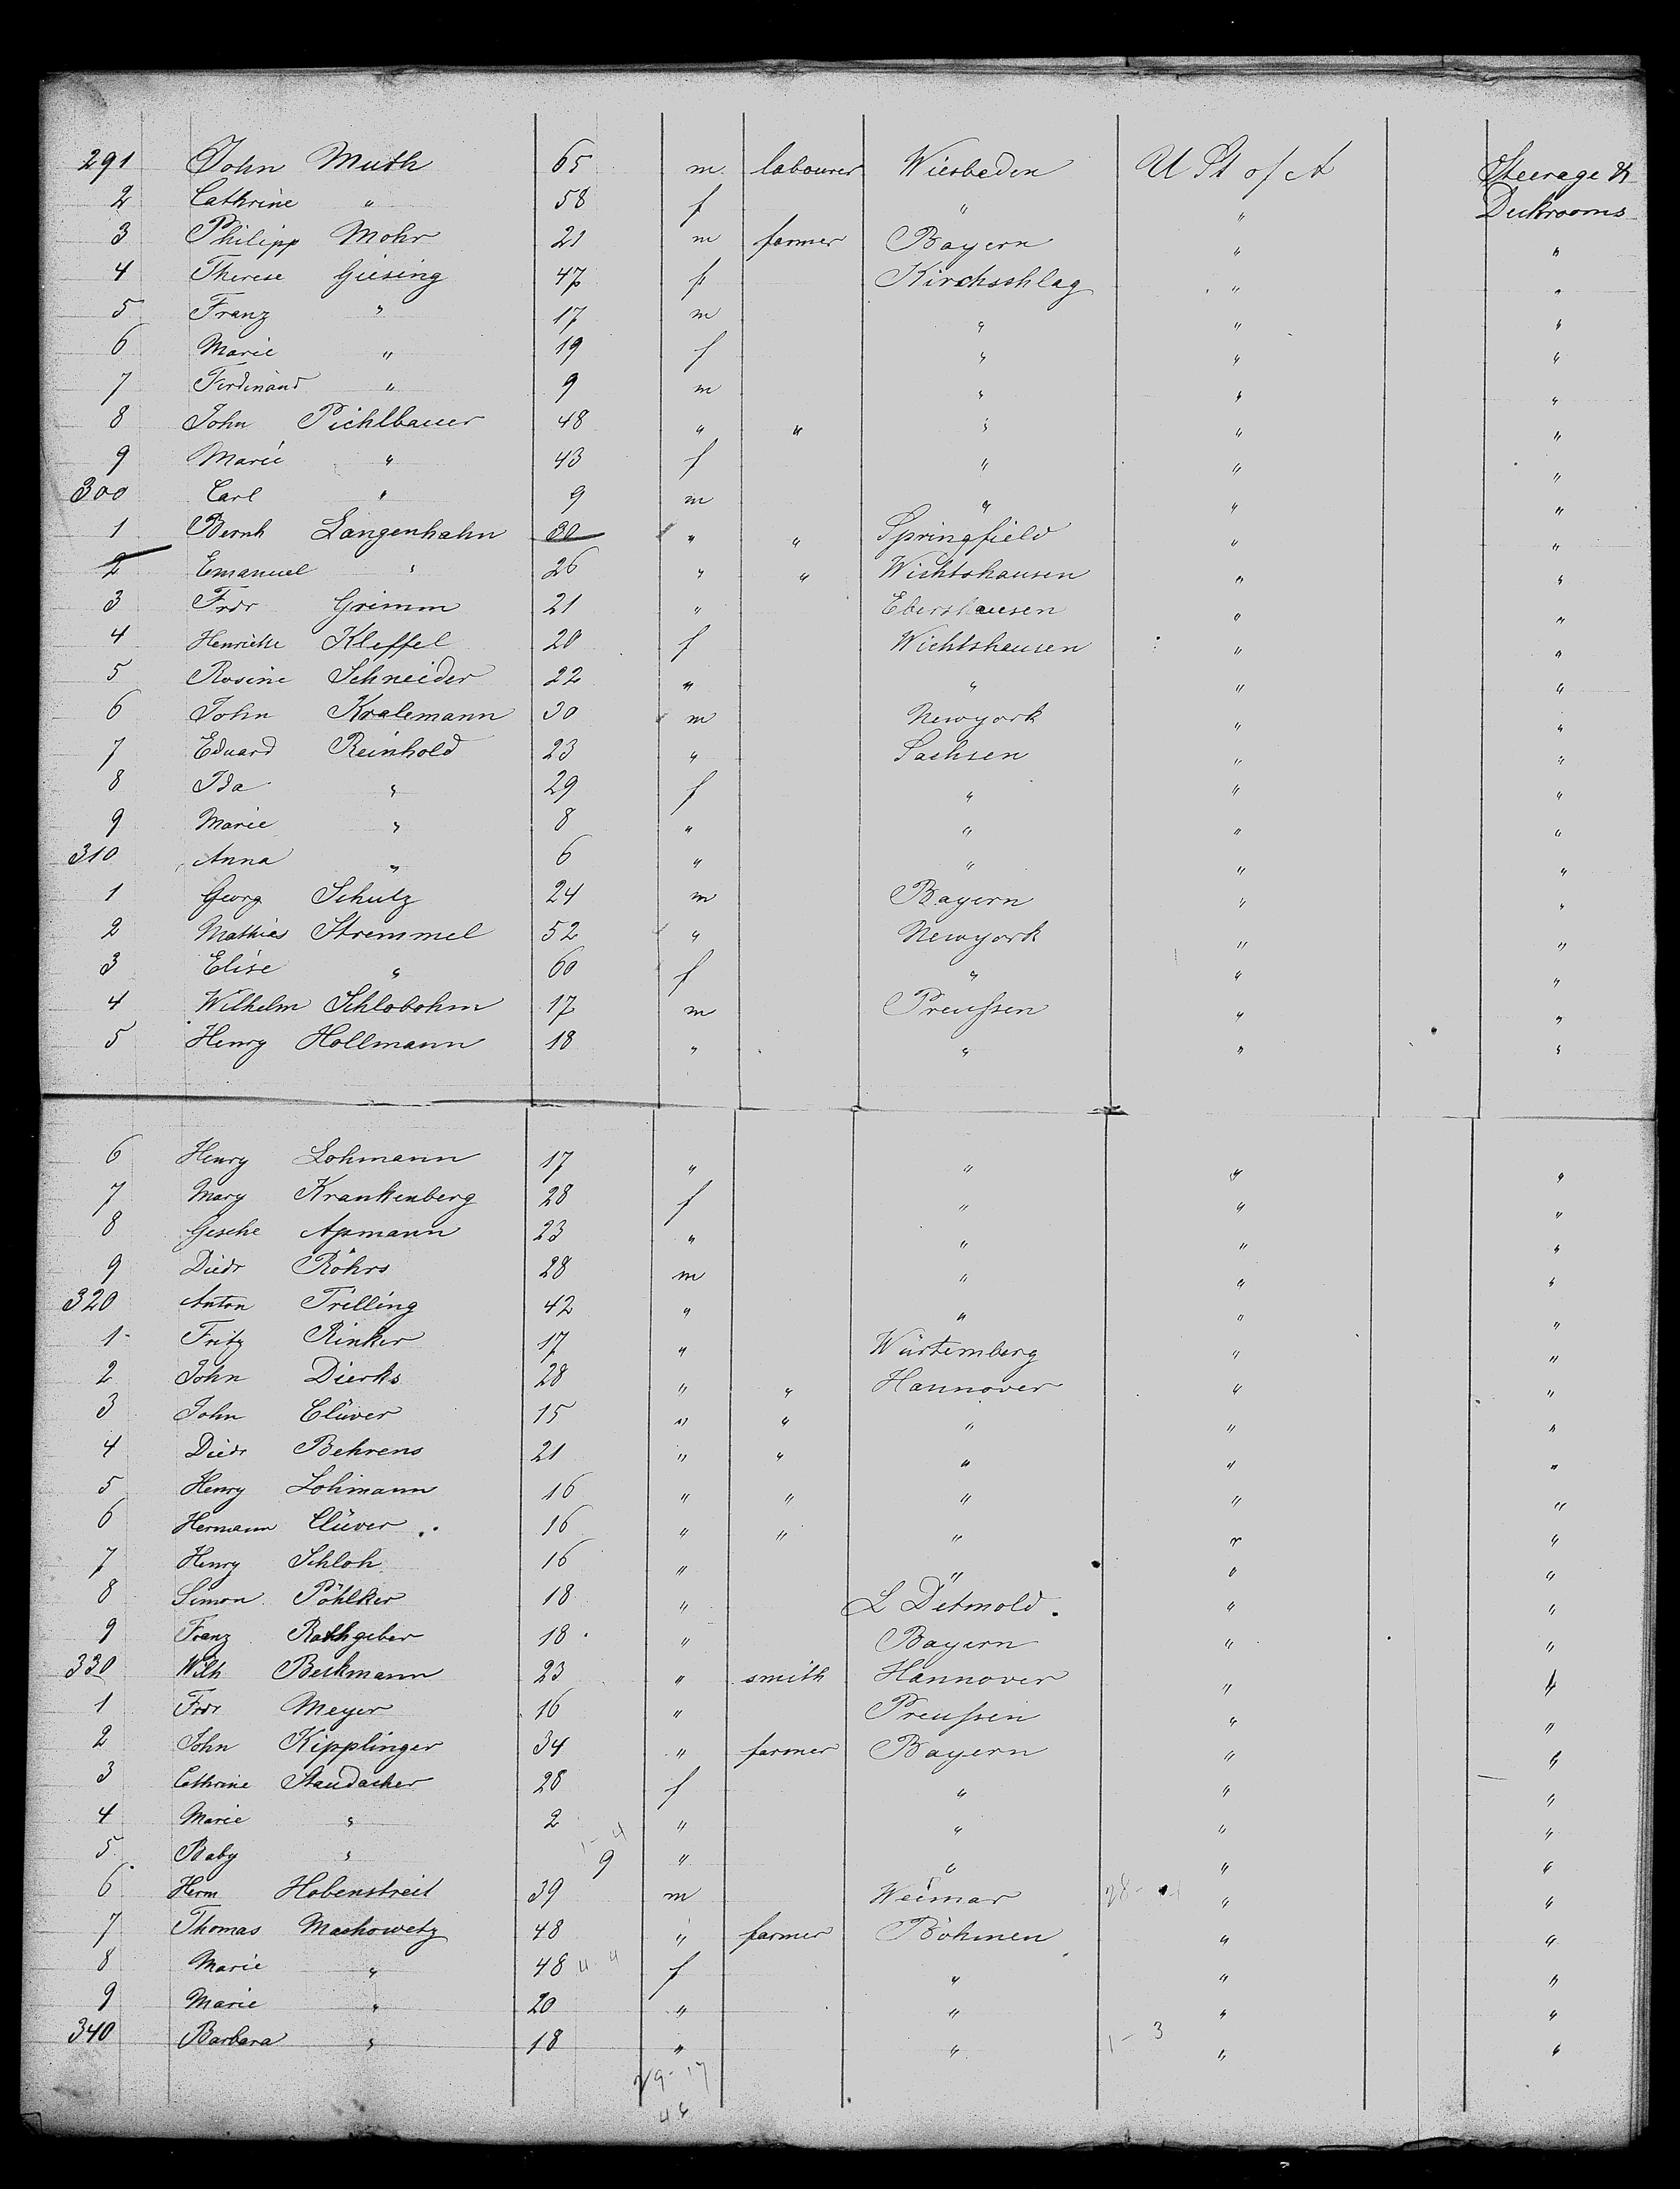 291 John Muth 65 m. labourer Wiesbaden U St of A Steerage &
2 Cathrine " 58 f " " Deckrooms
3 Philipp Mohr 21 m farmer Bayern " "
4 Therese Giesing 47 f Kirchschlag " "
5 Franz " 17 m " " "
6 Marie " 19 f " " "
7 Ferdinand " 9 m " " "
8 John Pichlbauer 48 " " " " "
9 Marie " 43 f " " "
300 Carl " 9 m " " "
1 Bernh Langenhahn 30 " " Springfield " "
2 Emanuel " 26 " " Wichtshausen " "
3 Frdr Grimm 21 " Ebershausen " "
4 Henriette Kleffel 20 f Wichtshausen " "
5 Rosine Schneider 22 " " " "
6 John Kralemann 30 m Newyork " "
7 Eduard Reinhold 23 " Sachsen " "
8 Ida " 29 f " " "
9 Marie " 8 " " " "
310 Anna " 6 " " " "
1 Georg Schulz 24 m Bayern " "
2 Mathies Stremmel 52 " Newyork " "
3 Elise " 60 f " " "
4 Wilhelm Schlobohm 17 m Preußen " "
5 Henry Hollmann 18 " " " "
6 Henry Lohmann 17 " " " "
7 Mary Krankenberg 28 f " " "
8 Gesche Apmann 23 " " " "
9 Diedr Röhrs 28 m " " "
320 Anton Trilling 42 " " " "
1 Fritz Rinker 17 " Würtemberg " "
2 John Dierks 28 " " Hannover " "
3 John Clüver 15 " " " " "
4 Diedr Behrens 21 " " " " "
5 Henry Lohmann 16 " " " " "
6 Hermann Clüver 16 " " " " "
7 Henry Schloh 16 " " " "
8 Simon Pöhlker 18 " L Detmold. " "
9 Franz Rathgeber 18 " Bayern " "
330 Wilh Beckmann 23 " smith Hannover " "
1 Frdr Meyer 16 " Preußen " "
2 John Kipplinger 34 " farmer Bayern " "
3 Cathrine Staudacher 28 f " " "
4 Marie " 2 " " " "
5 Baby " 9 " " " "
6 Herm Hobenstreit 39 m Weimar " "
7 Thomas Machowetz 48 " farmer Böhmen " "
8 Marie " 48 f " " "
9 Marie " 20 " " " "
340 Barbara " 18 " " 1-3 " "